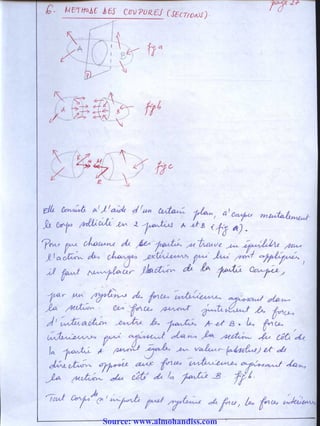 page 27
6- METHODE DES COUPURES (SECTIONS)
A
B
fig a
A
B
fig b
R
fig c
Elle consiste à l'aide d'un certain plan, à couper mentalement
le corps sollicité en 2 parties A et B (fig a).
Pour que chacune de ses parties se trouve en équilibre sous
l'action des charges extérieures qui lui sont appliquées,
il faut remplacer l'action de la partie coupée,
par un système de forces intérieures agissant dans
la section. ces forces seront justement les forces
d'interaction entre les parties A et B. les forces
intérieures qui agissent dans la section du côté de
la partie A seront égales en valeur (absolue) et de
direction opposée aux forces intérieures agissant dans
la section du côté de la partie B fig b
Tout corps n'importe quel système de force, les forces intérieures
Source: www.almohandiss.com